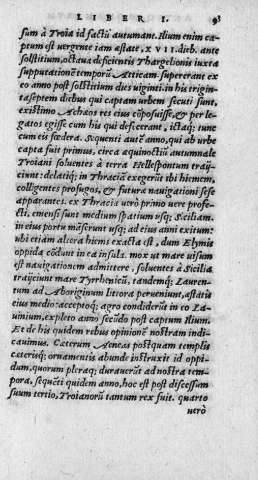 LIBER I. 93
sum à Troia id factũ autumant. Ilium enim ca
ptum est uergente iam æstate, XVII. dieb. ante
solstitium, octaua deficientis Thargelionis iuxta
supputationẽ temporũ Atticam. supererant ex
eo anno post solstitium dies uiginti. in his trigin-
taseptem diebus qui captam urbem secuti sunt,
existimo Achæos res eius cõposuisse, & per le-
gatos egisse cum his qui defecerant, ictaq; tunc
cum eis fœdera. Sequenti autẽ anno, qui ab urbe
capta fuit primus, circa æquinoctiũ autumnale
Troiani soluentes à terra Hellespontum traij-
ciunt: delatiq; in Thraciã exegerũt ibi hiemem,
colligentes profugos, & futuræ nauigationi sese
apparantes. ex Thracia uerò primo uere profe-
cti, emensi sunt medium spatium usq; Siciliam.
in eius portu mãserunt usq; ad eius anni exitum:
ubi etiam altera hiems exacta est, dum Elymis
oppida cõdunt in ea insula. mox ut mare uisum
est nauigationem admittere, soluentes à Sicilia
traijciunt mare Tyrrhenicũ, tandemq; Lauren-
tum ad Aboriginum littora perueniunt, æstatis
eius medio: acceptoq; agro condiderũt in eo La-
uinium, expleto anno secũdo post captum Ilium.
Et de his quidem rebus opinionẽ nostram indi-
cauimus. Cæterum Aeneas postquam templis
cæterisq; ornamentis abunde instruxit id oppi-
dum, quorum pleraq; durauerũt ad nostra tem-
pora, sequẽti quidem anno, hoc est post discessum
suum tertio, Troianorũ tantum rex fuit. quarto
uerò